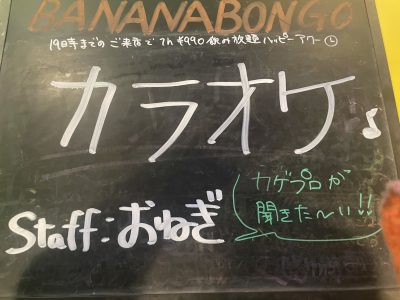 BANANABONGO
19時までのご来店で1h ¥990飲み放題ハッピーアワー
カラオケ♪
カゲプロが
聞きた〜い!!
Staff:おねぎ